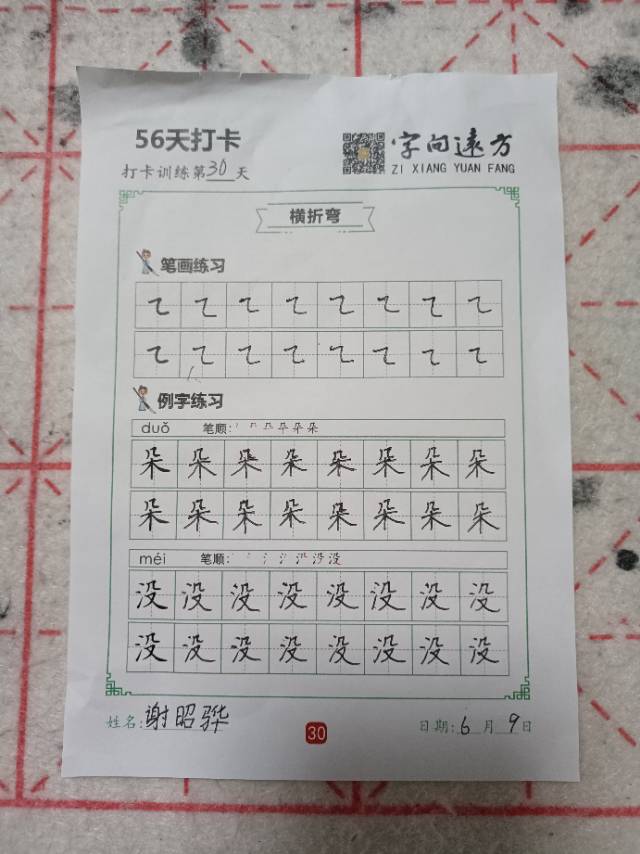 56天打卡
字向远方
打卡训练第30天
ZI XIANG YUAN FANG
横折弯
笔画练习
㇍ ㇍ ㇍ ㇍ ㇍ ㇍ ㇍ ㇍
㇍ ㇍ ㇍ ㇍ ㇍ ㇍ ㇍ ㇍
例字练习
duǒ 笔顺:
朵 朵 朵 朵 朵 朵 朵 朵
朵 朵 朵 朵 朵 朵 朵 朵
méi 笔顺:
没 没 没 没 没 没 没 没
没 没 没 没 没 没 没 没
姓名:谢昭骅
30
日期:6月9日